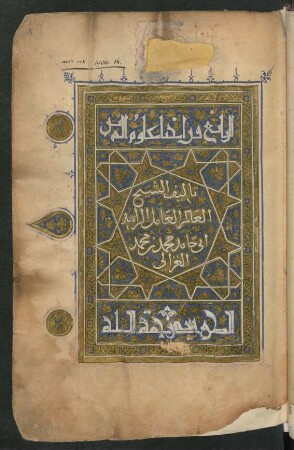 الرابع من احياء علوم الدين
تاليف الشيخ
العالم العامل الزاهد
ابى حامد محمد بن محمد
الغزالى
رحمة الله